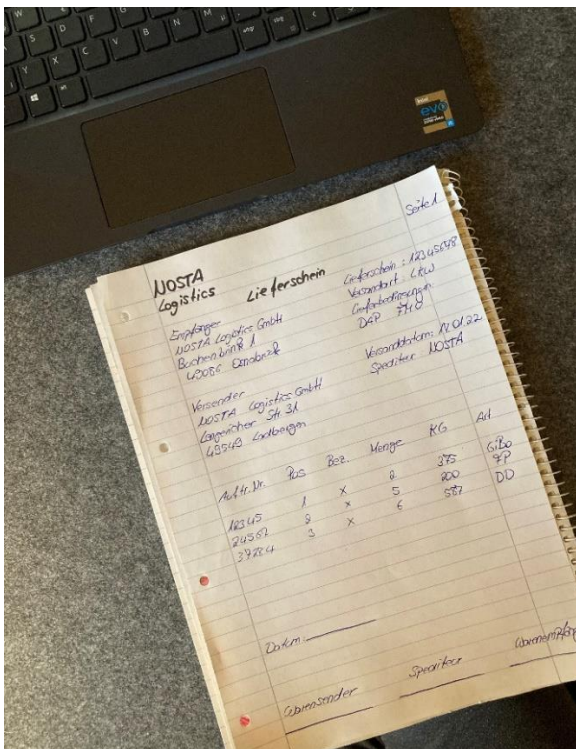 Seite 1
NOSTA
Logistics
Lieferschein
Lieferschein : 12345678
Versandart : LKW
Lieferbedingungen
DAP 7140
Empfänger
NOSTA Logistics GmbH
Buchenbrink 1
49086 Osnabrück
Versanddatum: 12.01.22
Spediteur : NOSTA
Versender
NOSTA Logistics GmbH
Lengericher Str. 31
49549 Ladbergen
Auftr. Nr. Pos Bez. Menge KG Art
12345 1 x 2 375 GiBo
24562 2 x 5 200 FP
37284 3 x 6 587 DD
Datum:
Warensender Spediteur Warenempfäng
intel
evo